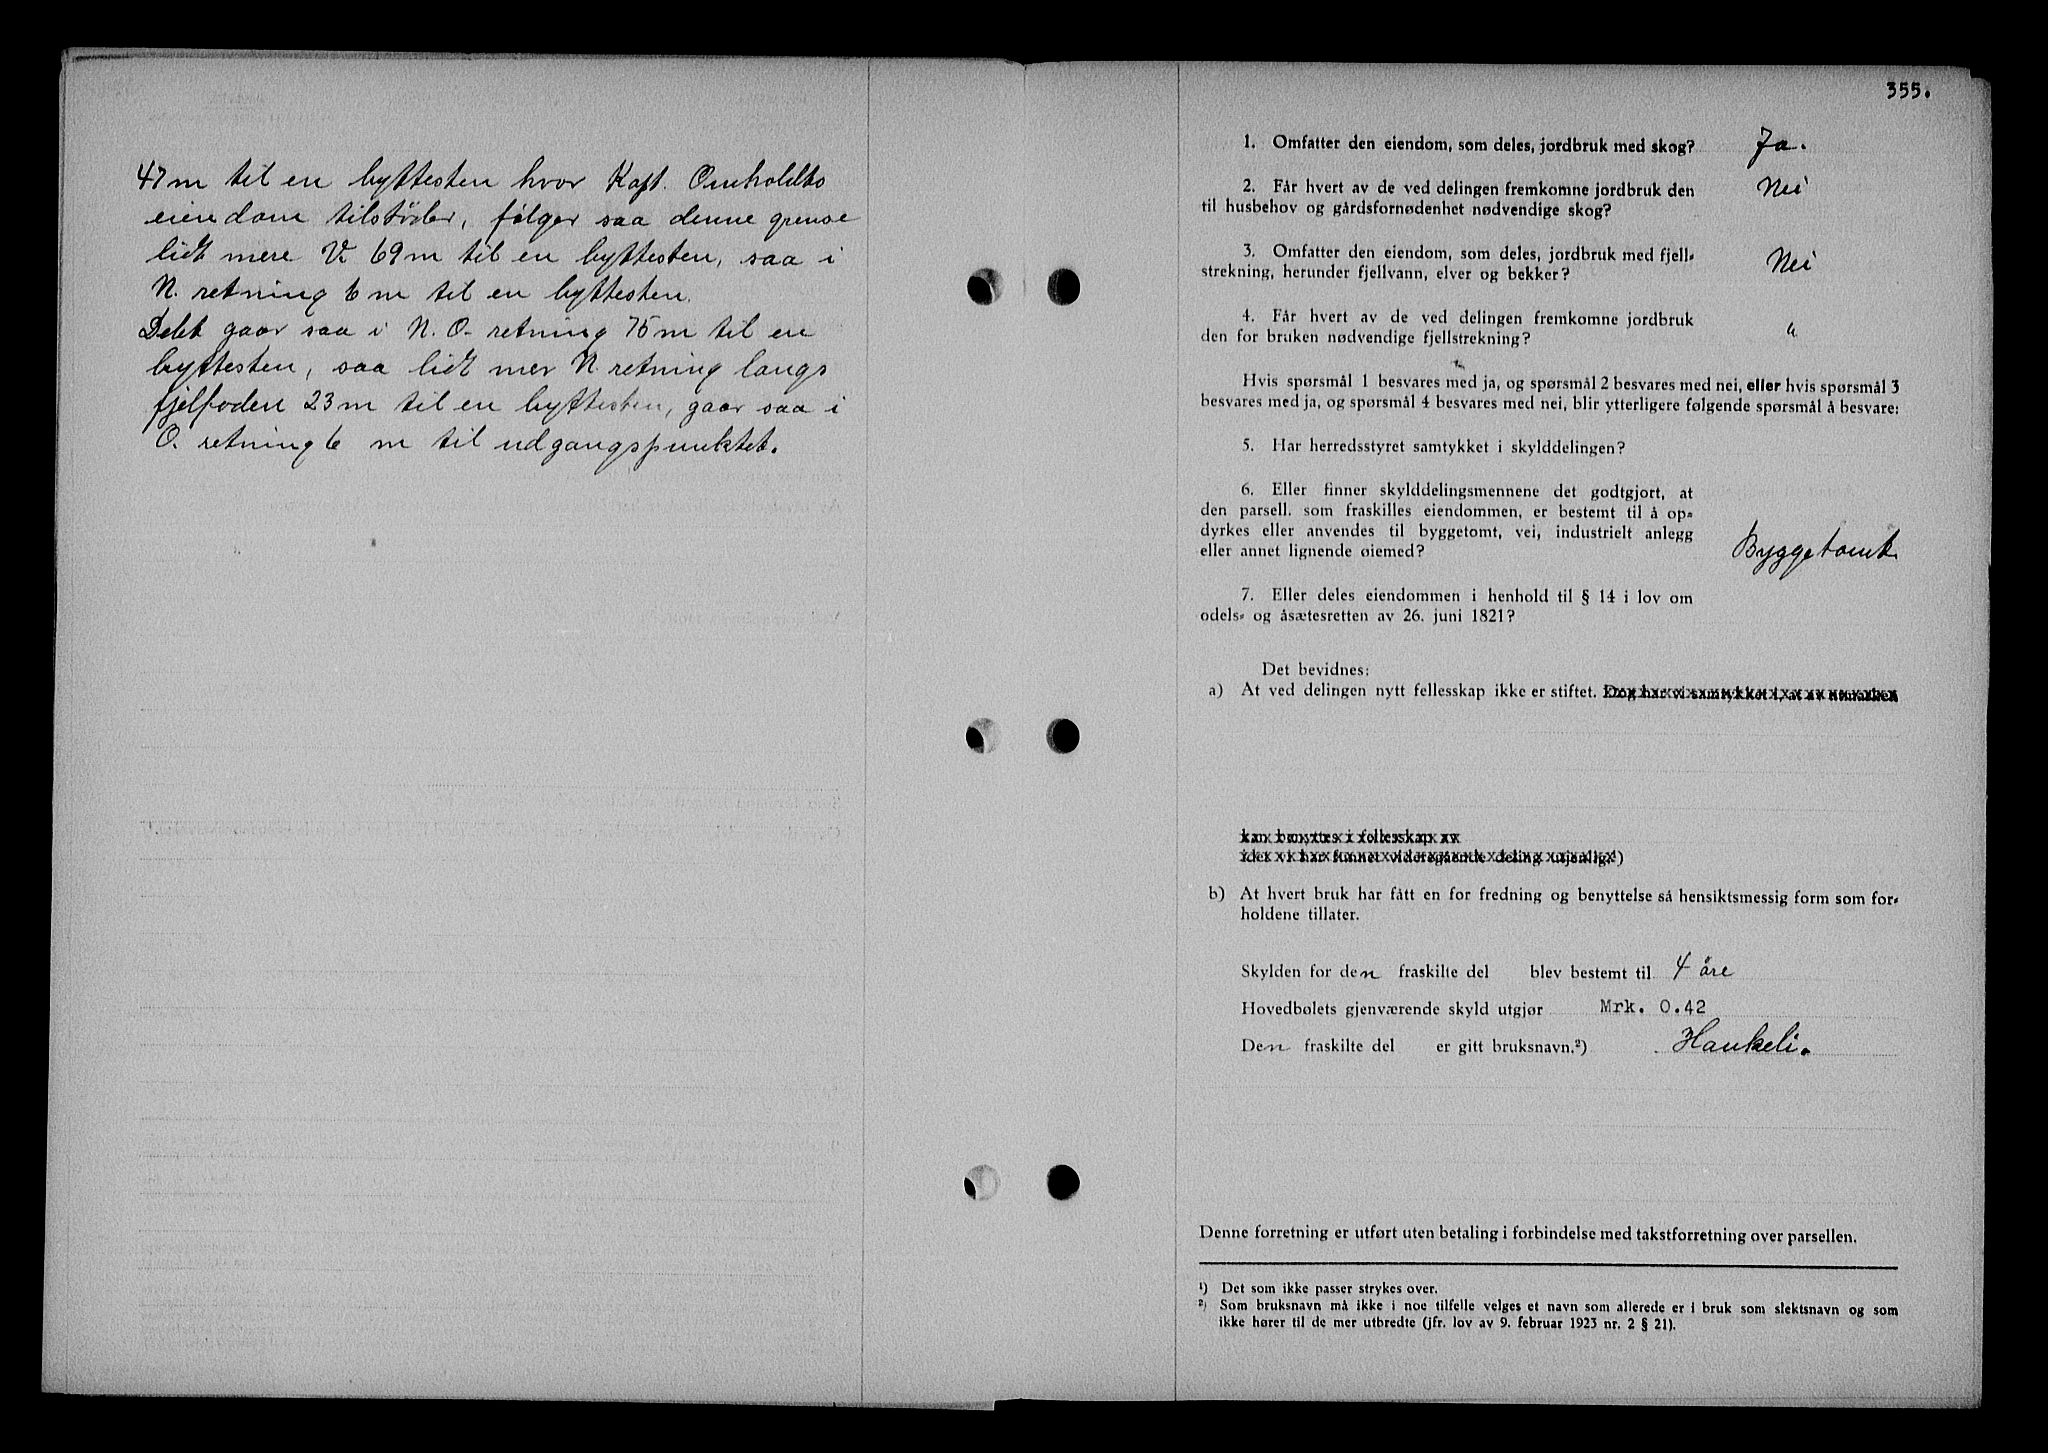 47 m til en byttesten hvor Kapt. Omholdts
eiendom tilstøder, følger saa denne grense
lidt mere V. 69 m til en byttesten, saa i
N. retning 6 m til en byttesten.
Delet gaar saa i N. O. retning 75 m til en
byttesten, saa lidt mer N. retning langs
fjelfoden 23 m til en byttesten, gaar saa i
O. retning 6 m til udgangspunktet.
355.
1. Omfatter den eiendom, som deles, jordbruk med skog? Ja.
2. Får hvert av de ved delingen fremkomne jordbruk den
til husbehov og gårdsfornødenhet nødvendige skog? Nei
3. Omfatter den eiendom, som deles, jordbruk med fjell-
strekning, herunder fjellvann, elver og bekker? Nei
4. Får hvert av de ved delingen fremkomne jordbruk
den for bruken nødvendige fjellstrekning? "
Hvis spørsmål 1 besvares med ja, og spørsmål 2 besvares med nei, eller hvis spørsmål 3
besvares med ja, og spørsmål 4 besvares med nei, blir ytterligere følgende spørsmål å besvare:
5. Har herredsstyret samtykket i skylddelingen?
6. Eller finner skylddelingsmennene det godtgjort, at
den parsell. som fraskilles eiendommen, er bestemt til å op-
dyrkes eller anvendes til byggetomt, vei, industrielt anlegg
eller annet lignende øiemed? Byggetomt
7. Eller deles eiendommen i henhold til § 14 i lov om
odels- og åsætesretten av 26. juni 1821?
Det bevidnes:
a) At ved delingen nytt fellesskap ikke er stiftet. Dog har vi samtykket i, at av utmarken
kan benyttes i fellesskap av
idet vi har funnet videregående deling utjenlig.¹)
b) At hvert bruk har fått en for fredning og benyttelse så hensiktsmessig form som for-
holdene tillater.
Skylden for den fraskilte del blev bestemt til 4 öre
Hovedbølets gjenværende skyld utgjør Mrk. 0.42
Den fraskilte del er gitt bruksnavn.²) Haukeli.
Denne forretning er utført uten betaling i forbindelse med takstforretning over parsellen.
¹) Det som ikke passer strykes over.
²) Som bruksnavn må ikke i noe tilfelle velges et navn som allerede er i bruk som slektsnavn og som
ikke hører til de mer utbredte (jfr. lov av 9. februar 1923 nr. 2 § 21).